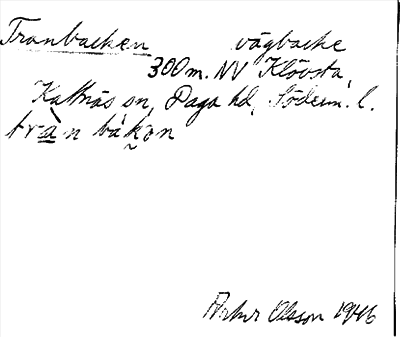 Tranbacken vägbacke
300m. NV Klövsta,
Kattnäs sn, Daga hd, Söderm. l.
tràn bákən
Artur Olsson 1946